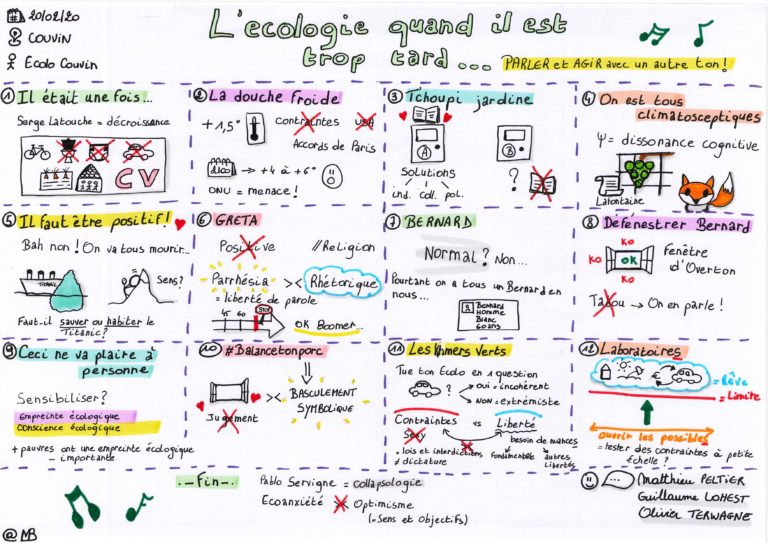 20/02/20
COUVIN
Ecolo Couvin
L'ecologie quand il est
trop tard...
PARLER et AGIR avec un autre ton!
1 Il était une fois...
Serge Latouche = décroissance
CV
2 La douche froide
+1,5°
contraintes
USA
Accords de Paris
2100
→ +4 à +6°
ONU = menace!
3 Tchoupi jardine
A
B
Solutions
ind. coll. pol.
?
4 On est tous
climatosceptiques
Ψ = dissonance cognitive
Lafontaine
5 Il faut être positif!
Bah non! On va tous mourir...
TITANIC
Sens?
Faut-il sauver ou habiter le
Titanic?
6 GRETA
Positive
//Religion
Parrhésia
><
Rhétorique
= liberté de parole
45 60
STOP
OK Boomer...
7 BERNARD
Normal? Non...
Pourtant on a tous un Bernard en
nous...
Bernard
Homme
Blanc
60 ans
8 Défénestrer Bernard
KO
KO OK KO
KO
Fenêtre
d'Overton
Tabou → On en parle!
9 Ceci ne va plaire à
personne
Sensibiliser?
Empreinte écologique
Conscience écologique
+ pauvres ont une empreinte écologique
- importante
10 #Balancetonporc
><
BASCULEMENT
SYMBOLIQUE
Jugement
11 Les Khmers Verts
Tue ton Ecolo en 1 question
? → oui = incohérent
→ NON = extrémiste
Contraintes vs Liberté
Sexy
besoin de nuances
= lois et interdictions
≠ dictature
Fondamentale
autres
Libertés
12 Laboratoires
€
= Rêve
= Limite
ouvrir les possibles
= tester des contraintes à petite
échelle?
.-Fin-.
Pablo Servigne = collapsologie
Ecoanxiété
Optimisme
(= Sens et objectifs)
Matthieu PELTIER
Guillaume LOHEST
Olivier TERWAGNE
@MB